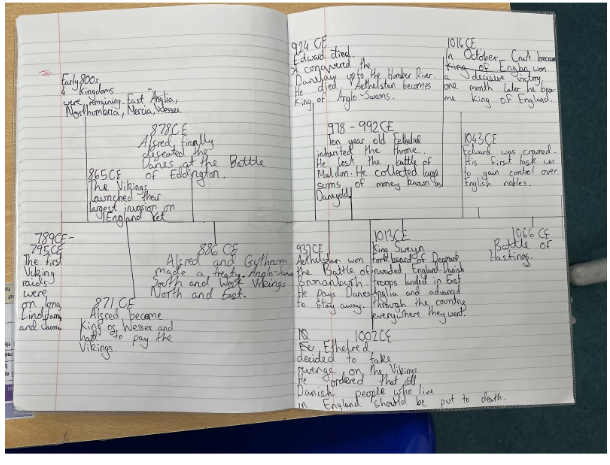 Early 800s,
4 Kingdoms
were remaining. East Anglia,
Northumbria, Mercia, Wessex.
878CE
Alfred finally
defeated the
Danes at the Battle
of Eddington.
865CE
The Vikings
launched their
largest invasion on
England yet
789CE-
795CE
The first
Viking
raids
were
on
and
886 CE
Alfred and Guthrum
made a treaty. Anglo-
South and West Vikings
North and East.
871 CE
Alfred became
King of Wessex and
had to pay the
Vikings.
924 CE
Edward died.
conquered the
Danelaw up to the Humber River.
He died Aethelstan becomes
King of Anglo-Saxons.
1016CE
In October Cnut became
King of
a decisive victory,
one month later he beca-
me King of England.
978 - 992CE
Ten year old Ethelred
inherited the throne.
He lost the battle of
Maldon. He collected large
sums of money known by
Danegeld
1043CE
Edward was crowned.
His first task was
to gain control over
English nobles.
937CE
Aethelstan won
the Battle of
He pays Danes
to stay away.
1013CE
King Sweyn
Forkbeard of Denmark
invaded England. Danish
troops landed in East
Anglia and advanced
through the country
everywhere they went.
1066 CE
Battle of
Hastings.
1002CE
Ethelred
decided to take
revenge on the Vikings
He ordered that all
Danish people who live
in England should be put to death.